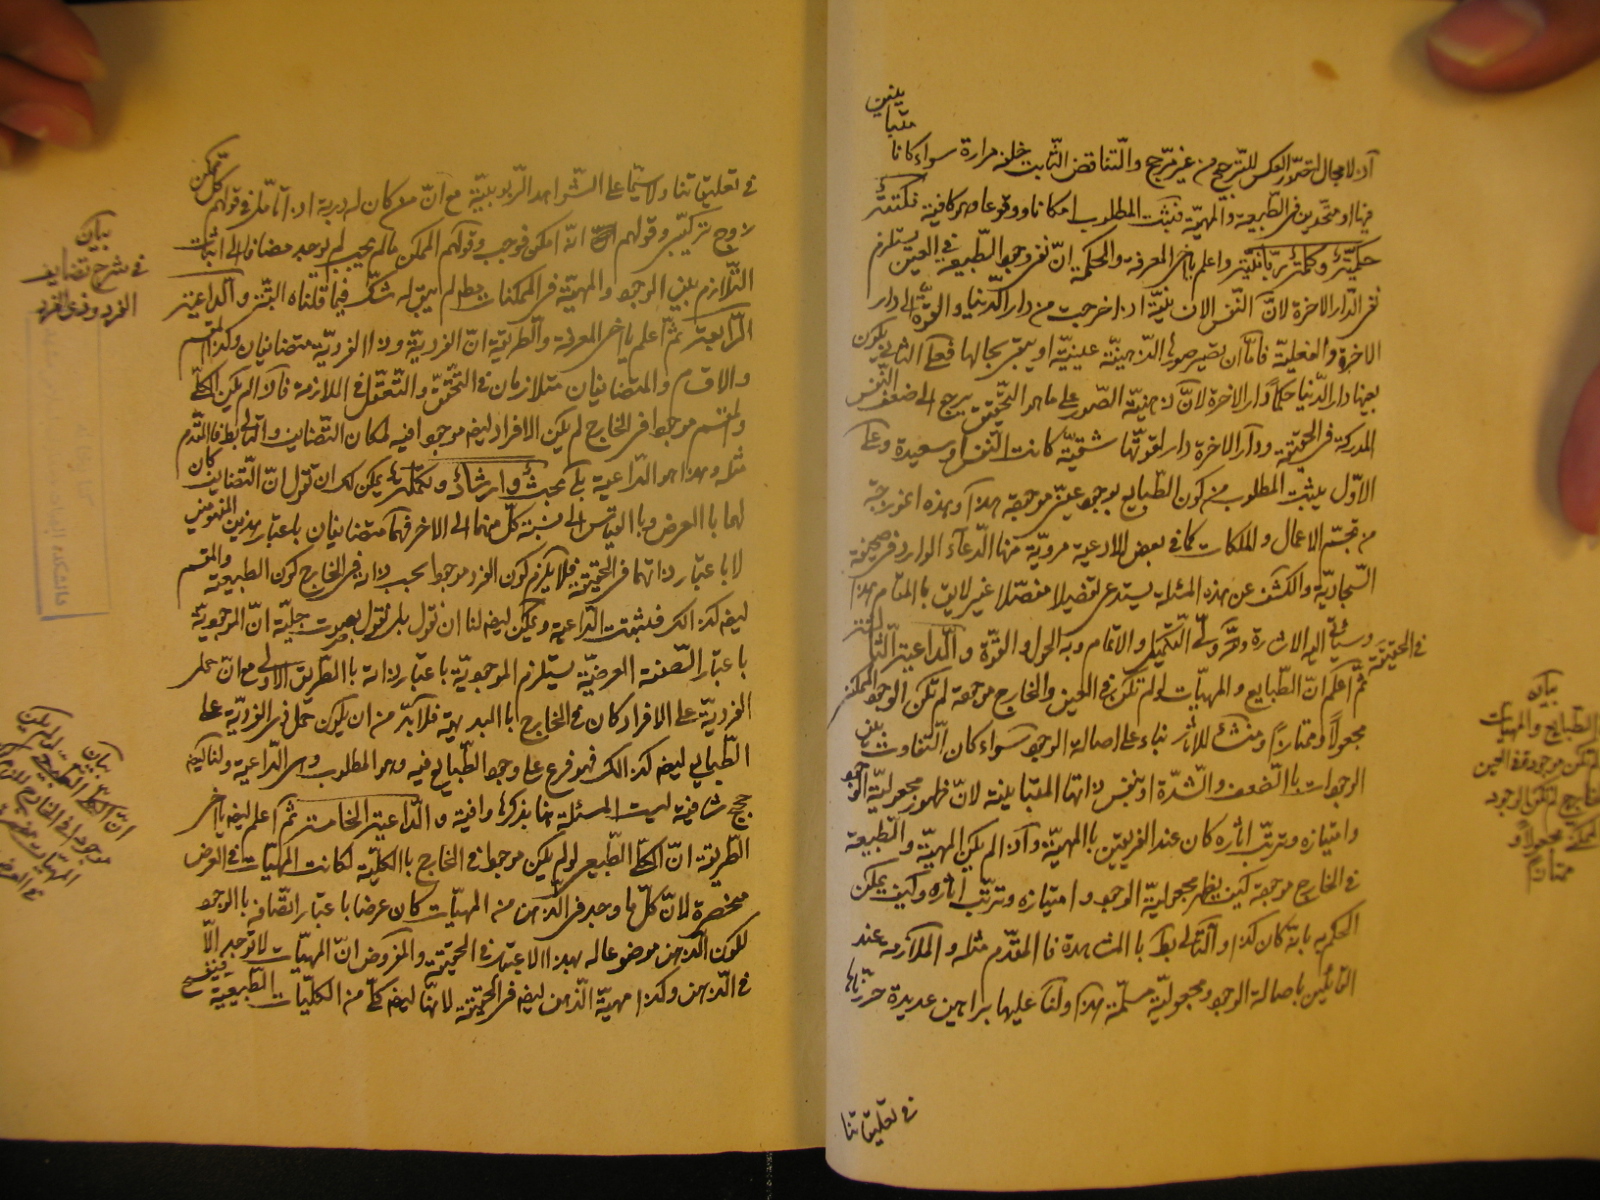 متباينين
اذ لا مجال لتصوّر العكس للترجيح من غير مرجّح والتناقض الثابت خلفه مرارة سواء كانا
فيها او متحدين في الطبيعة والمهيّة فيثبت المطلوب امكانا ووقوعا وهو كافية فكتة
حكميّة وكلمة ربّانيّة واعلم يا اخى المعرفة والحكمة انّ نفى وجود الطّبيعة في العين يستلزم
نفى الدّار الاخرة لانّ النّفس الانسانيّة اذا خرجت من دار الدّنيا والقوّة الى دار
الاخرة والفعليّة فامّا ان يصير صورها الذّهنيّة عينيّة او يبقى بحالها فعلى الثانى يكون
بعينها دار الدّنيا حكما دار الاخرة لانّ ذهنيّة الصّور على ما هو التّحقيق يرجع الى ضعف النّفس
المدركة في الحقيقة ودار الاخرة دار لقوّتها شقيّة كانت النّفس او سعيدة وعلى
الاوّل يثبت المطلوب من كون الطّبايع بوجود عينىّ موجودة هذا وبهذه انموزجة
من تجسّم الاعمال والملكات كما في بعض الادعية مرويّة منها الدّعاء الوارد في صحيفة
السّجاديّة والكشف عن هذه المسئلة يستدعى تفصيلا مفصّلا غير لايق بالمقام هذا
وسيأتى اليه الاشارة وهو ولىّ التّكميل والاتمام وبه الحول والقوّة والدّاعية الثّالثة
في الحقيقة ثمّ اعلم انّ الطّبايع والمهيّات لو لم تكن في العين والخارج موجودة لم تكن الوجود الممكن
مجعولا وممتازا ومنشأ للاثار بناء على اصالة الوجود سواء كان التّفاوت بين
الوجودات بالضّعف والشّدة او بنفس ذاتها المتباينة لانّ ظهور مجعوليّة الوجود
وامتيازه وترتّب اثاره كان عند الفريقين بالمهيّة واذ لم يكن المهيّة والطّبيعة
في الخارج موجودة كيف يظهر مجعوليّة الوجود وامتيازه وترتّب اثاره وكيف يمكن
الحكم به بانه كان كذا والتّالى بط بالمشاهدة فالمقدّم مثله والملازمة عند
القائلين باصالة الوجود ومجعوليّته مسلّمة هذا ولنا عليها براهين عديدة حرّرناها
في تعليقاتنا
بيان
الطّبايع والمهيات
لم تكن موجودة في العين
والخارج لم تكن الوجود
الممكن مجعولا و
ممتازا
في تعليقاتنا ولا سيّما على الشّواهد الرّبوبيّة مع انّ من كان له دربة اذا تأمّل في قولهم كلّ ممكن
زوج تركيبى وقولهم انّه امكن فوجب وقولهم الممكن ما لم يجب لم يوجد مضافا الى اثبات
التّلازم بين الوجود والمهيّة في الممكنات لم يبق له شكّ فيما قلناه البتّة والدّاعية
الرّابعة ثمّ اعلم يا اخى المعرفة والطّريقة انّ الفرديّة وذا الفرديّة متضايفان وكذا المقسم
والاقسام والمتضايفان متلازمان في التّحقّق والتّعقّل في اللازمة فاذا لم يكن الكلّى
والمقسم موجودا في الخارج لم يكن الافراد ايضه موجودا فيه لمكان التّضايف والتالى بط فالمقدّم
مثله وهذا هو الدّاعية بلى بحث وارشاد وتكملة يمكن لك ان تقول انّ التّضايف كان
لهما بالعرض وبالقياس الى نسبة كلّ منهما الى الاخر فهما متضايفان باعتبار هذين المفهومين
لا باعتبار ذاتهما في الحقيقة فلا يلزم كون الفرد موجودا بحسب ذاته في الخارج كون الطبيعة والمقسم
ايضه كذالك فلثبقت الدّاعية ويمكن ايضه لنا ان نقول بلى نقول بصوت جليّة انّ الموجوديّة
باعتبار الصّفة العرضيّة يستلزم الموجوديّة باعتبار ذاته بالطّريق الاولى مع انّ حمل
الفرديّة على الافراد كان في الخارج بالبديهة فلا بدّ من ان يكون حمل ذى الفرديّة على
الطّبايع ايضه كذالك فهو فرع على وجود الطّبايع فيه وهو المطلوب وهى الدّاعية ولنا ايضه
حجج شافية ليست المسئلة هنا بذكرها وافية والدّاعية الخامسة ثمّ اعلم ايضه يا اخى
الطّريقة انّ الكلّى الطّبيعى لو لم يكن موجودا في الخارج بالكليّة لكانت المهيّات في العرض
منحصرة لانّ كلّ ما وجد في الذّهن من المهيّات كان عرضا باعتبار اتّصافه بالوجود
لكون الذّهن موضوعا له بهذا الاعتبار في الحقيقة والمفروض انّ المهيّات لا توجد الّا
في الذّهن وكذا مهيّة الذّهن ايضه في الحقيقة لانّها ايضه كلّى من الكليّات الطّبيعية فيتضح
بيان
في شرح تضايف
الفرد وذى الفرد
بيان
انّ الكلّى الطّبيعى لو لم يكن
موجودا في الخارج
المهيّات
في العرض